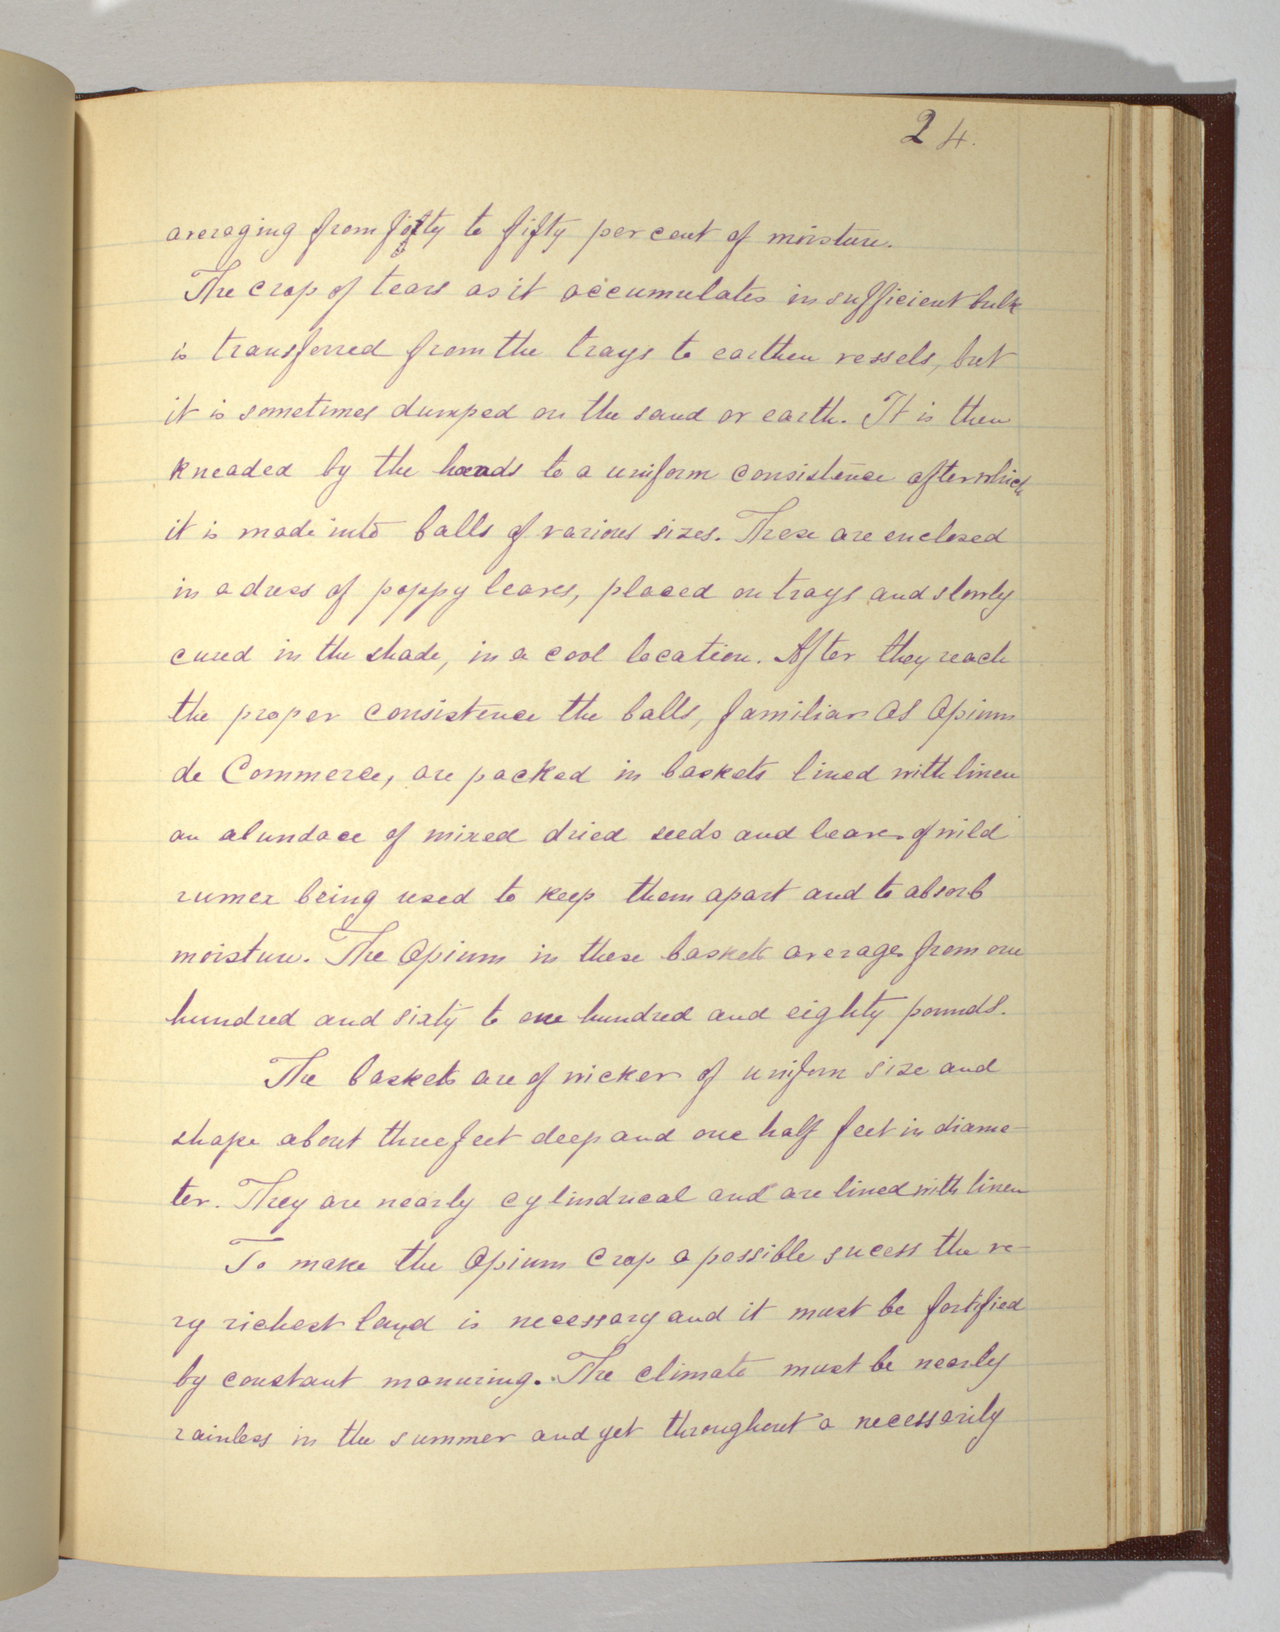 24.
averaging from fifty to fifty per cent of moisture.
The crop of tears as it accumulates in sufficient bulk
is transferred from the trays to earthen vessels, but
it is sometimes dumped on the sand or earth. It is then
kneaded by the hands to a uniform consistence after which
it is made into balls of various sizes. These are enclosed
in a dress of poppy leaves, placed on trays and slowly
cured in the shade, in a cool location. After they reach
the proper consistence the balls, familiar as Opium
de Commerce, are packed in baskets lined with linen
an abundace of mixed dried seeds and leaves of wild
rumex being used to keep them apart and to absorb
moisture. The Opium in these baskets averages from one
hundred and sixty to one hundred and eighty pounds.
The baskets are of wicker of uniform size and
shape about three feet deep and one half feet in diame-
ter. They are nearly cylindrical and are lined with linen
To make the Opium Crop a possible sucess the ve-
ry richest land is necessary and it must be fortified
by constant manuring. The climate must be nearly
rainless in the summer and yet throughout a necessarily